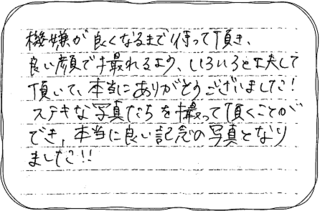 機嫌が良くなるまで待って頂き、
良い顔で撮れるよう、いろいろと工夫して
頂いて、本当にありがとうございました！
ステキな写真たちを撮って頂くことが
でき、本当に良い記念の写真となり
ました!!